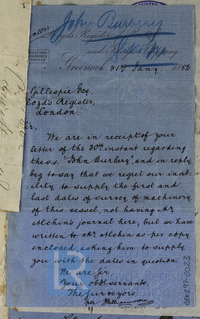 John Burbery
Lloyds Register
Greenwich 31st Jany 1882
Gillespie Esq
Lloyds Register,
London
Sir,
We are in receipt of your
letter of the 30th instant regarding
the s.s. "John Burbery" and in reply
beg to say that we regret our inabi-
lity to supply the first and
last dates of survey of machinery
of this vessel, not having Mr
journal here, but we have
written to Mr as per copy
enclosed asking him to supply
you with the dates in question
We are Sir,
Your obdt servants,
The Surveyors